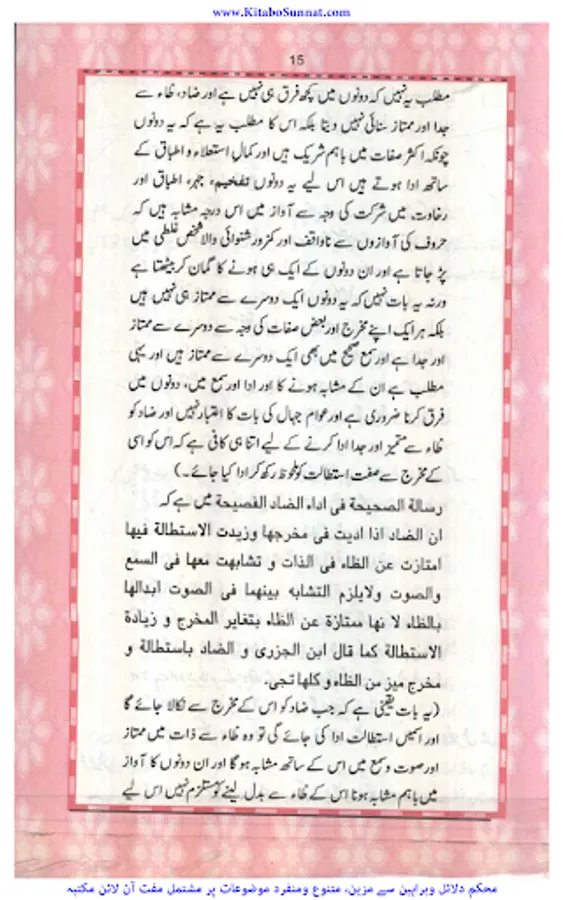 www.KitaboSunnat.com
15
مطلب یہ نہیں کہ دونوں میں کچھ فرق ہی نہیں ہے اور ضاد، ظاء سے
جدا اور ممتاز سنائی نہیں دیتا بلکہ اس کا مطلب یہ ہے کہ یہ دونوں
چونکہ اکثر صفات میں باہم شریک ہیں اور کمال استعلاء و اطباق کے
ساتھ ادا ہوتے ہیں اس لیے یہ دونوں تفخیم، جہر، اطباق اور
رخاوت میں شرکت کی وجہ سے آواز میں اس درجہ مشابہ ہیں کہ
حروف کی آوازوں سے ناواقف اور کمزور شنوائی والا شخص غلطی میں
پڑ جاتا ہے اور ان دونوں کے ایک ہی ہونے کا گمان کر بیٹھتا ہے
ورنہ یہ بات نہیں کہ یہ دونوں ایک دوسرے سے ممتاز ہی نہیں ہیں
بلکہ ہر ایک اپنے مخرج اور بعض صفات کی وجہ سے دوسرے سے ممتاز
اور جدا ہے اور سمع صحیح میں بھی ایک دوسرے سے ممتاز ہیں اور یہی
مطلب ہے ان کے مشابہ ہونے کا اور ادا اور سمع میں، دونوں میں
فرق کرنا ضروری ہے اور عوام جہال کی بات کا اعتبار نہیں اور ضاد کو
ظاء سے متمیز اور جدا ادا کرنے کے لیے اتنا ہی کافی ہے کہ اس کو اسی
کے مخرج سے صفت استطالت کو ملحوظ رکھ کر ادا کیا جائے۔)
رسالة الصحيحة فی اداء الضاد الفصيحة میں ہے کہ
ان الضاد اذا اديت فی مخرجها وزيدت الاستطالة فيها
امتازت عن الظاء فی الذات و تشابهت معها فی السمع
والصوت ولايلزم التشابه بينهما فی الصوت ابدالها
بالظاء لا نها ممتازة عن الظاء بتغاير المخرج و زيادة
الاستطالة كما قال ابن الجزرى و الضاد باستطالة و
مخرج ميز من الظاء و كلها تجى.
(یہ بات یقینی ہے کہ جب ضاد کو اس کے مخرج سے نکالا جائے گا
اور اسمیں استطالت ادا کی جائے گی تو وہ ظاء سے ذات میں ممتاز
اور صوت و سمع میں اس کے ساتھ مشابہ ہوگا اور ان دونوں کا آواز
میں باہم مشابہ ہونا اس کے ظاء سے بدل لینے کو مستلزم نہیں اس لیے
محکم دلائل وبراہین سے مزین، متنوع ومنفرد موضوعات پر مشتمل مفت آن لائن مکتبہ